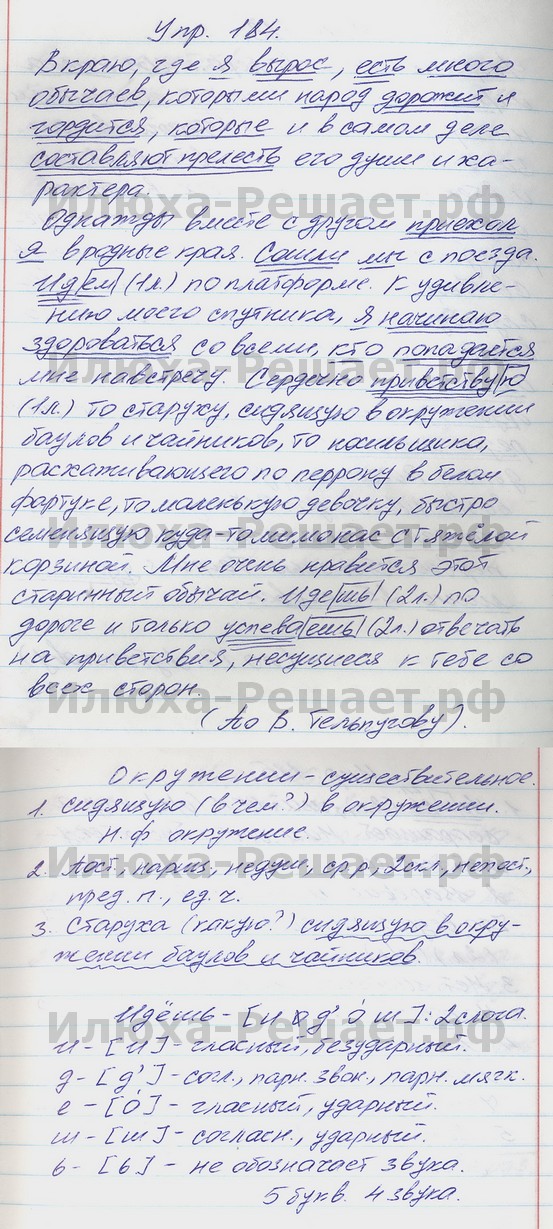 Упр. 184.
В краю, где я вырос, есть много
обычаев, которыми народ дорожит и
гордится, которые и в самом деле
составляют прелесть его души и ха-
рактера.
Однажды вместе с другом приехал
я в родные края. Сошли мы с поезда.
Идем (1л.) по платформе. К удивле-
нию моего спутника, я начинаю
здороваться со всеми, кто попадается
мне навстречу. Сердечно приветствую
(1л.) то старуху, сидящую в окружении
баулов и чайников, то носильщика,
расхаживающего по перрону в белом
фартуке, то маленькую девочку, быстро
семенящую куда-то мимо нас с тяжёлой
корзиной. Мне очень нравится этот
старинный обычай. Идешь (2л.) по
дороге и только успеваешь (2л.) отвечать
на приветствия, несущиеся к тебе со
всех сторон.
(По В. Тельпугову).
Окружении - существительное.
1. сидящую (в чем?) в окружении.
Н.ф окружение.
2. Пост., нариц., недуш., ср.р., 2скл., непост.,
пред. п., ед. ч.
3. Старуха (какую?) сидящую в окру-
жении баулов и чайников.
Идёшь - [и д' о́ ш]: 2 слога.
и - [и] - гласный, безударный.
д - [д'] - согл., парн. звон., парн. мягк.
е - [о́] - гласный, ударный.
ш - [ш] - согласн., ударный.
ь - [ь] - не обозначает звука.
5 букв. 4 звука.
Илюха-Решает.рф
Илюха-Решает.рф
Илюха-Решает.рф
Илюха-Решает.рф
Илюха-Решает.рф
Илюха-Решает.рф
Илюха-Решает.рф